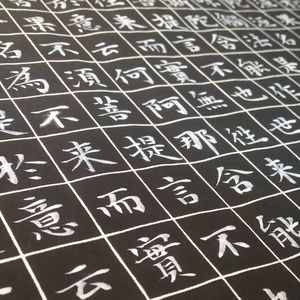 果意来提
名不云而言舍法
為須何實不能果
提不菩阿無也作
於来提那往世
意而言舍来
云實不能